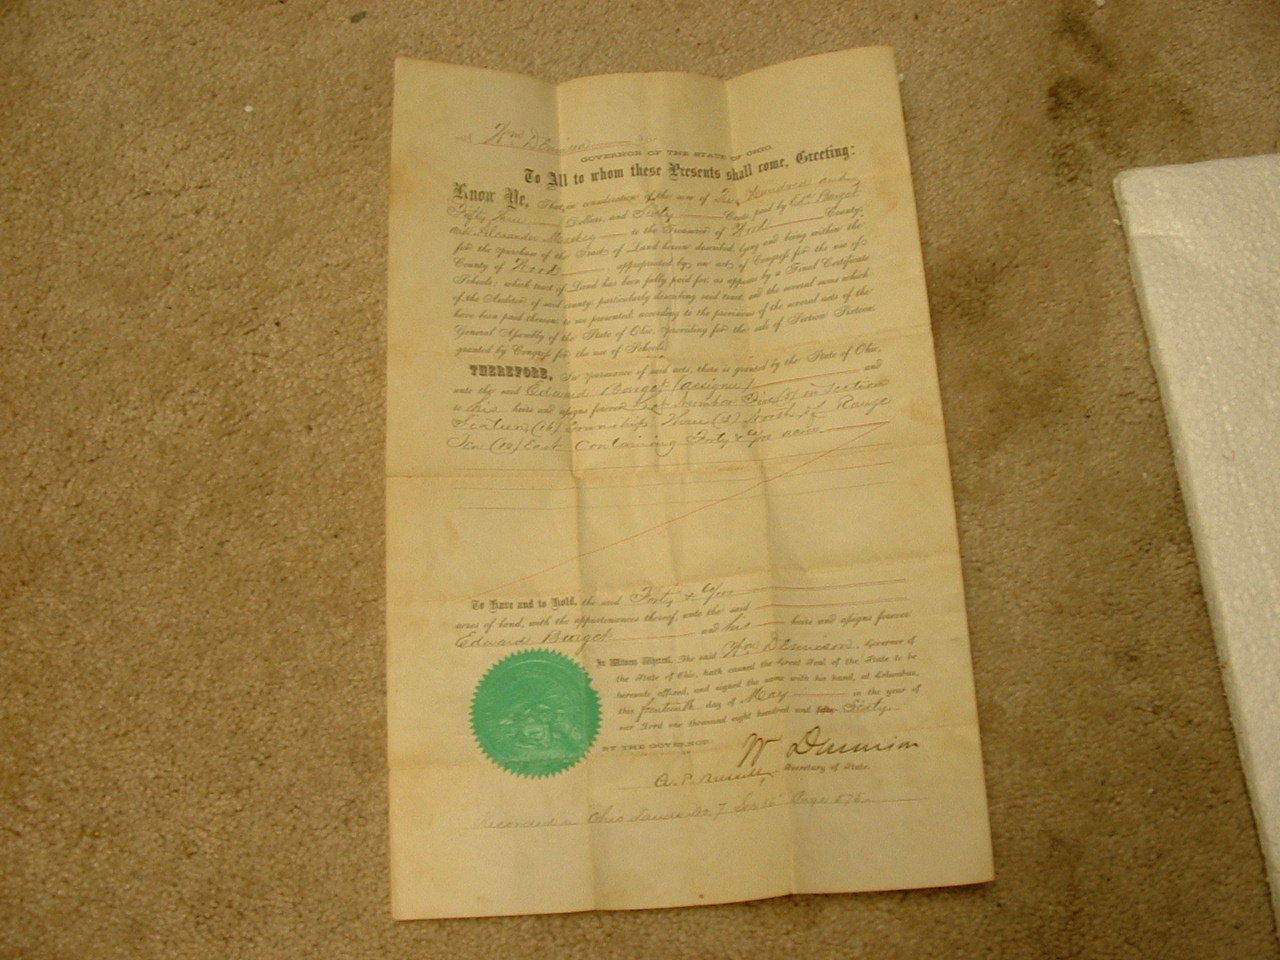 Wm Dennison
GOVERNOR OF THE STATE OF OHIO.
To All to whom these Presents shall come, Greeting:
Know Ye, That, in consideration of the sum of Hundred and
Fifty three Dollars, and Sixty Cents, paid by Ed
and Alexander to the Treasurer of Wood County,
for the purchase of the Tract of Land herein described, lying and being within the
County of Wood, appropriated by an act of Congress for the use of
Schools; which tract of Land has been fully paid for, as appears by a Final Certificate
of the Auditor of said county, particularly describing said tract, and the several sums which
have been paid thereon; to me presented, according to the provisions of the several acts of the
General Assembly of the State of Ohio, providing for the sale of Section Sixteen
granted by Congress for the use of Schools.
THEREFORE, In pursuance of said acts, there is granted by the State of Ohio,
unto the said Edward (assignee) and
to his heirs and assigns forever Lot Number in Section
Sixteen (16) Township Three (3) North, of Range
Ten (10) East Containing Forty & acres
To Have and to Hold, the said Forty &
acres of land, with the appurtenances thereof, unto the said
Edward and his heirs and assigns forever
In Witness Whereof, The said Wm Dennison, Governor of
the State of Ohio, hath caused the Great Seal of the State to be
hereunto affixed, and signed the same with his hand, at Columbus,
this fourteenth day of May in the year of
our Lord one thousand eight hundred and fifty Sixty.
BY THE GOVERNOR:
W Dennison
A. P. Russell, Secretary of State.
Recorded in Ohio Lands No 7 Sec 16 Page 575